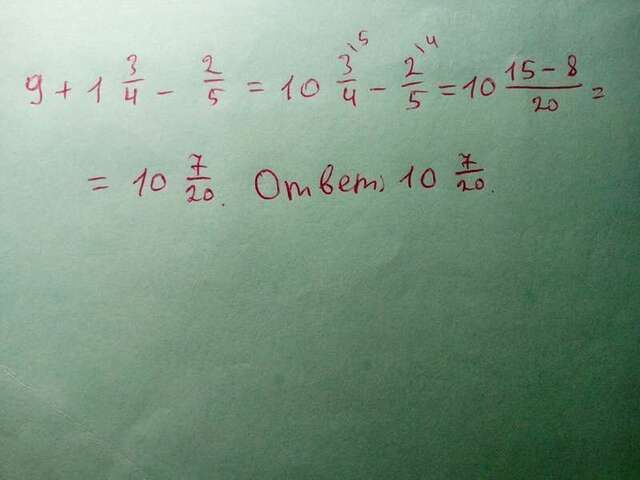 9 + 1 3/4 - 2/5 = 10 3/4 \5 - 2/5 \4 = 10 15-8/20 =
= 10 7/20. Ответ: 10 7/20.